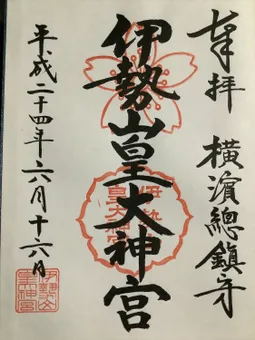 奉拝 横濱總鎮守
伊勢山皇大神宮
平成二十四年六月十六日
伊勢山
皇大神宮